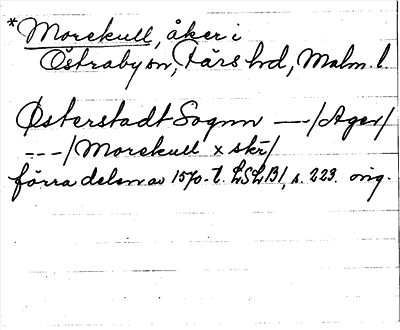 *Morskull, åker i
Östraby sn, Färs hd, Malm. l.
Østerstadt Sognn —/Ager/
---/Morskull x skr/
förra delen av 1570-t. LSLB1, s. 223. orig.